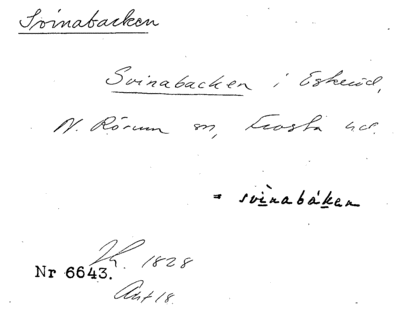 Svinabacken
Svinabacken i Eskeröd,
N. Rörum sn, Frosta hd.
= svìnabáken
1828
Nr 6643.
Ant 18.